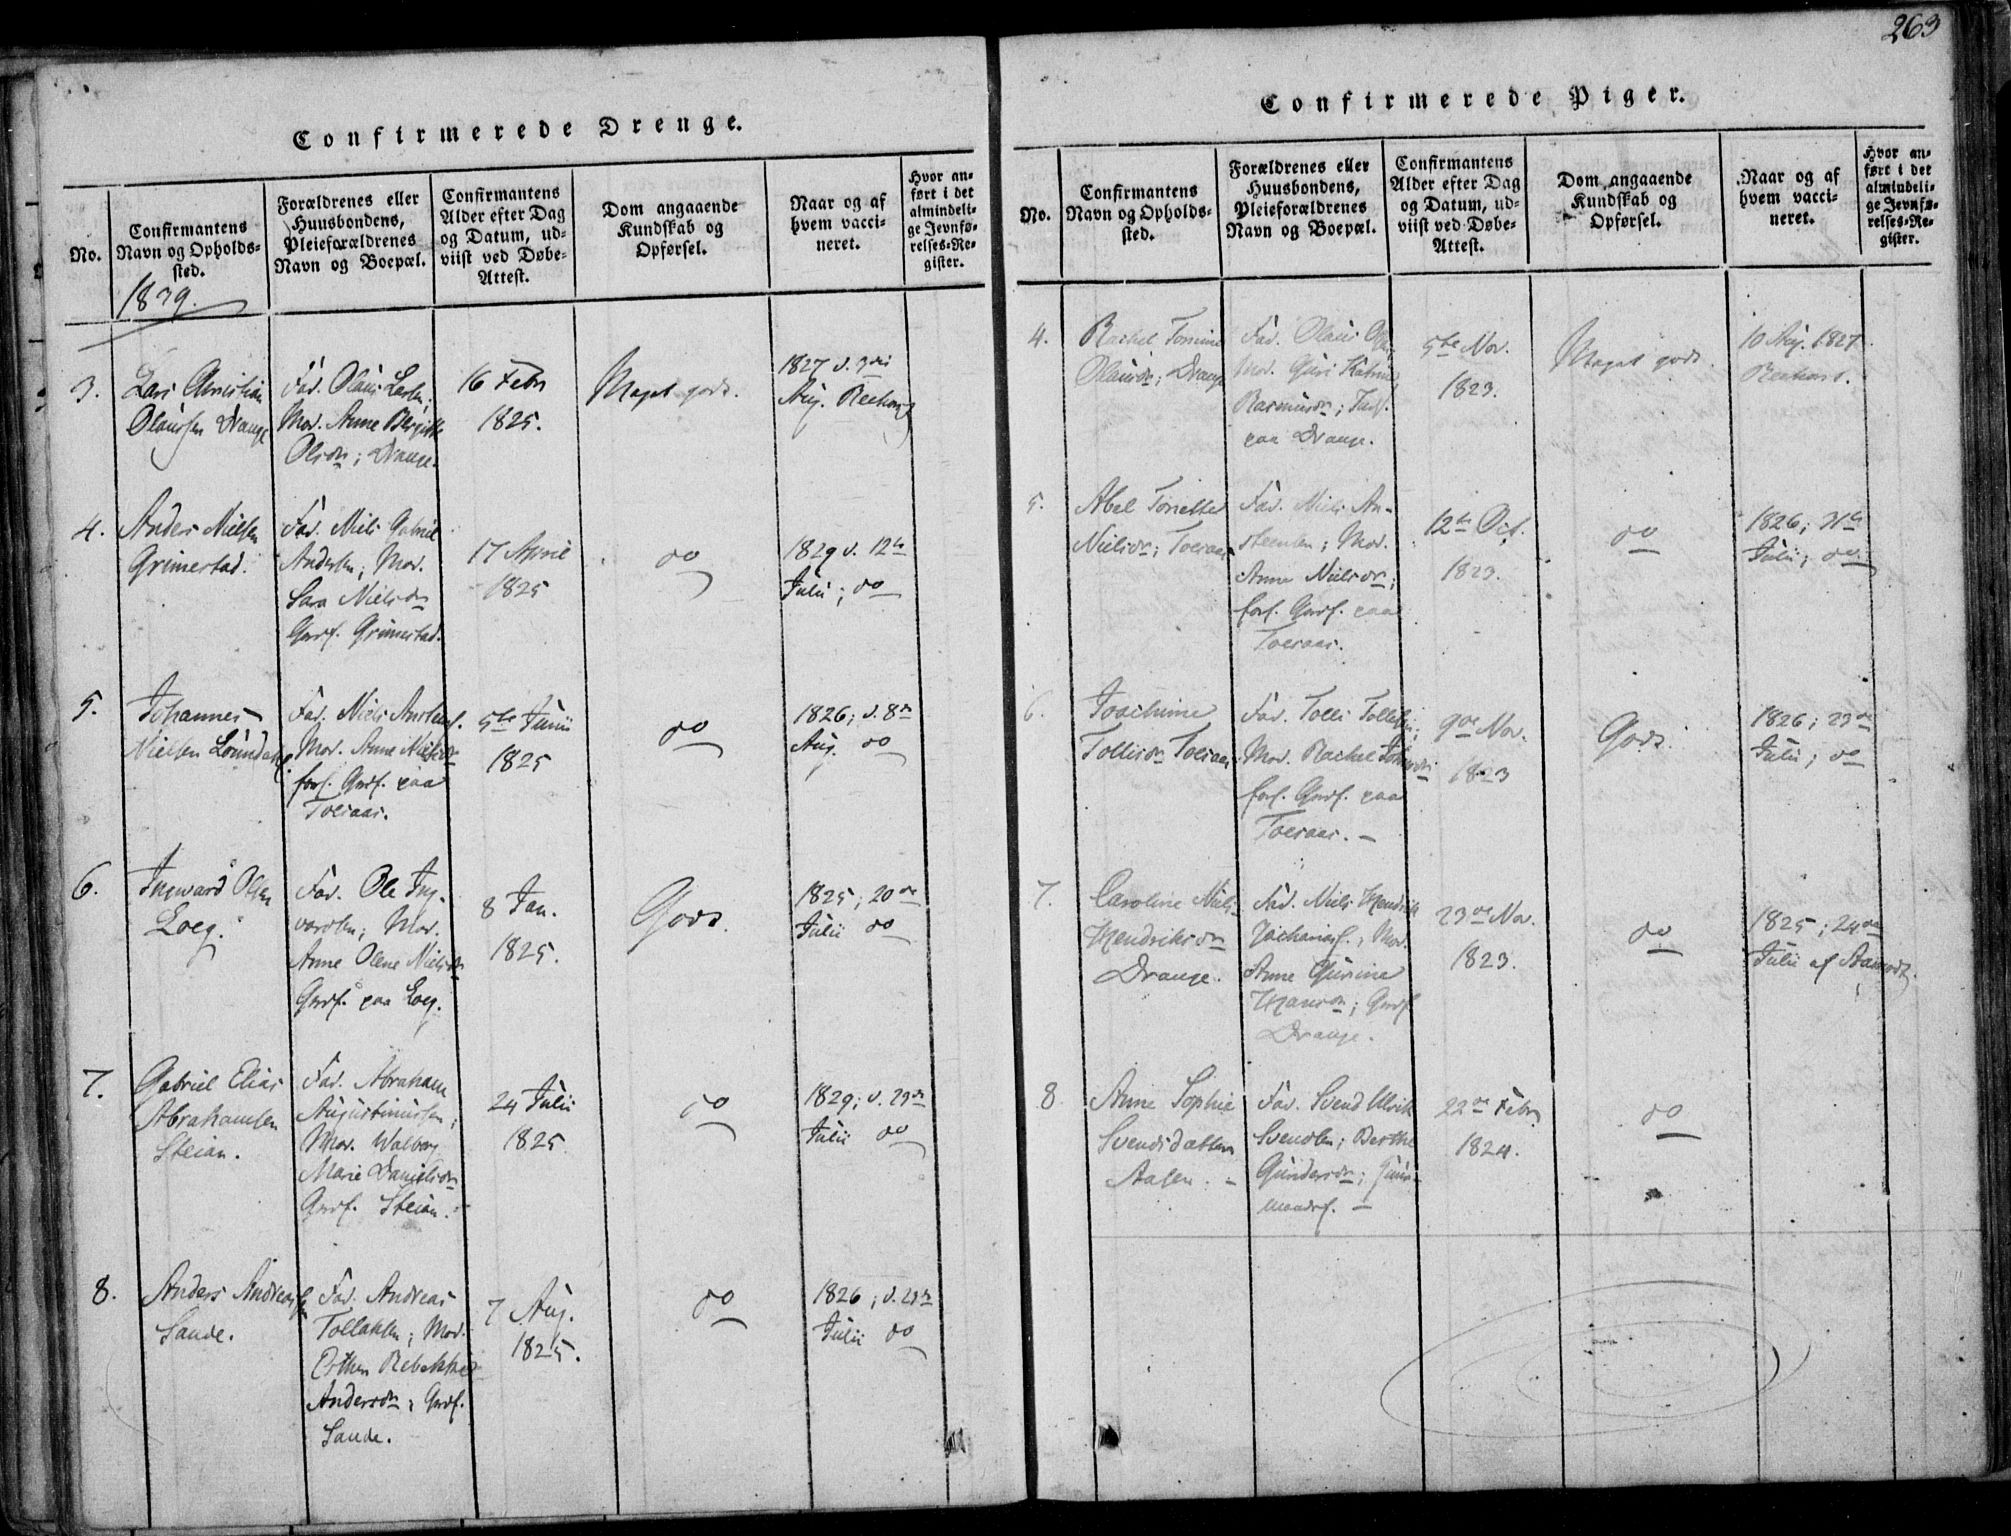 263
Confirmerede Drenge.
No.
Confirmantens
Navn og Opholds-
sted.
Forældrenes eller
Huusbondens,
Pleieforældrenes
Navn og Boepæl.
Confirmantens
Alder efter Dag
og Datum, ud-
viist ved Døbe-
Attest.
Dom angaaende
Kundskab og
Opførsel.
Naar og af
hvem vacci-
neret.
Hvor an-
ført i det
almindeli-
ge Jevnfø-
relses-Re-
gister.
1839.
3.
Lars Christian
Olaussen Drange
Fad. Olaus Larsen;
Mod. Anne Birgitte
Olsdr; Drange.
16 Febr
1825.
Meget godt.
1827 d. 3die
Aug.
4.
Anders Nielsen
Grimestad.
Fad. Niels Gabriel
Andersen; Mod.
Sara Nielsdr
Gmf. Grimestad.
17 April
1825
do
1829 d. 12te
Julii; do
5.
Johannes
Nielsen
Fad. Niels
Mod. Anne Nielsdr
forf. Gmf. paa
Toesaas.
5te Junii
1825
do
1826; d. 8de
Aug. do
6.
Ingward Olsen
Loeg.
Fad. Ole Ing-
vardsen; Mod.
Anne Olene Nielsdr
Gmf. paa Loeg.
8 Jan.
1825.
Godt.
1825; 20de
Julii do
7.
Gabriel Elias
Abrahamsen
Steian.
Fad. Abraham
Augustinussen;
Mod. Walborg
Marie Danielsdr
Gmf. Steian.
24 Julii
1825
do
1829; d. 23de
Julii do
8.
Anders Andreassen
Sande.
Fad. Andreas
Tollaksen; Mod.
Esther Rebekka
Andersdr; Gmf.
Sande.
7 Aug.
1825.
do
1826; d. 23de
Julii do
Confirmerede Piger.
No.
Confirmantens
Navn og Opholds-
sted.
Forældrenes eller
Huusbondens,
Pleieforældrenes
Navn og Boepæl.
Confirmantens
Alder efter Dag
og Datum, ud-
viist ved Døbe-
Attest.
Dom angaaende
Kundskab og
Opførsel.
Naar og af
hvem vacci-
neret.
Hvor an-
ført i det
almindeli-
ge Jevnfø-
relses-Re-
gister.
4.
Rachel Tomine
Olausdr; Drange
Fad. Olaus
Mod. Guri Katrine
Rasmusdr;
paa Drange.
5te Nov.
1823.
Meget godt.
10 Aug. 1827
5.
Abel Tonette
Nielsdr; Toesaas
Fad. Niels An-
steensen; Mod.
Anne Nielsdr;
forf. Gmf. paa
Toesaas.
12te Oct.
1823.
do
1826; 31te
Julii; do
6.
Joachime
Tollisdr Toesaas
Fad. Tolli Tollisen;
Mod. Rachel
forf. Gmf. paa
Toesaas. —
9de Nov.
1823
Godt.
1826; 23de
Julii; do
7.
Caroline Niels-
Hendriksdr
Drange.
Fad. Niels Hendrik
Zachariasf.; Mod.
Anne Gurine
Hansdr; Gmf
Drange.
23de Nov.
1823.
do
1825; 24de
Julii af
8
Anne Sophie
Svendsdatter
Aasen. -
Fad. Svend Ulrik
Svendsen; Berthe
Gundersdr;
mandsf. —
22de Febr
1824.
do